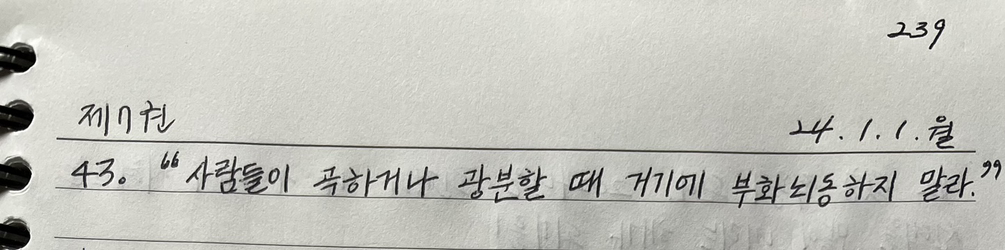 239
제7권
24.1.1.월
43. “사람들이 곡하거나 광분할 때 거기에 부화뇌동하지 말라.”